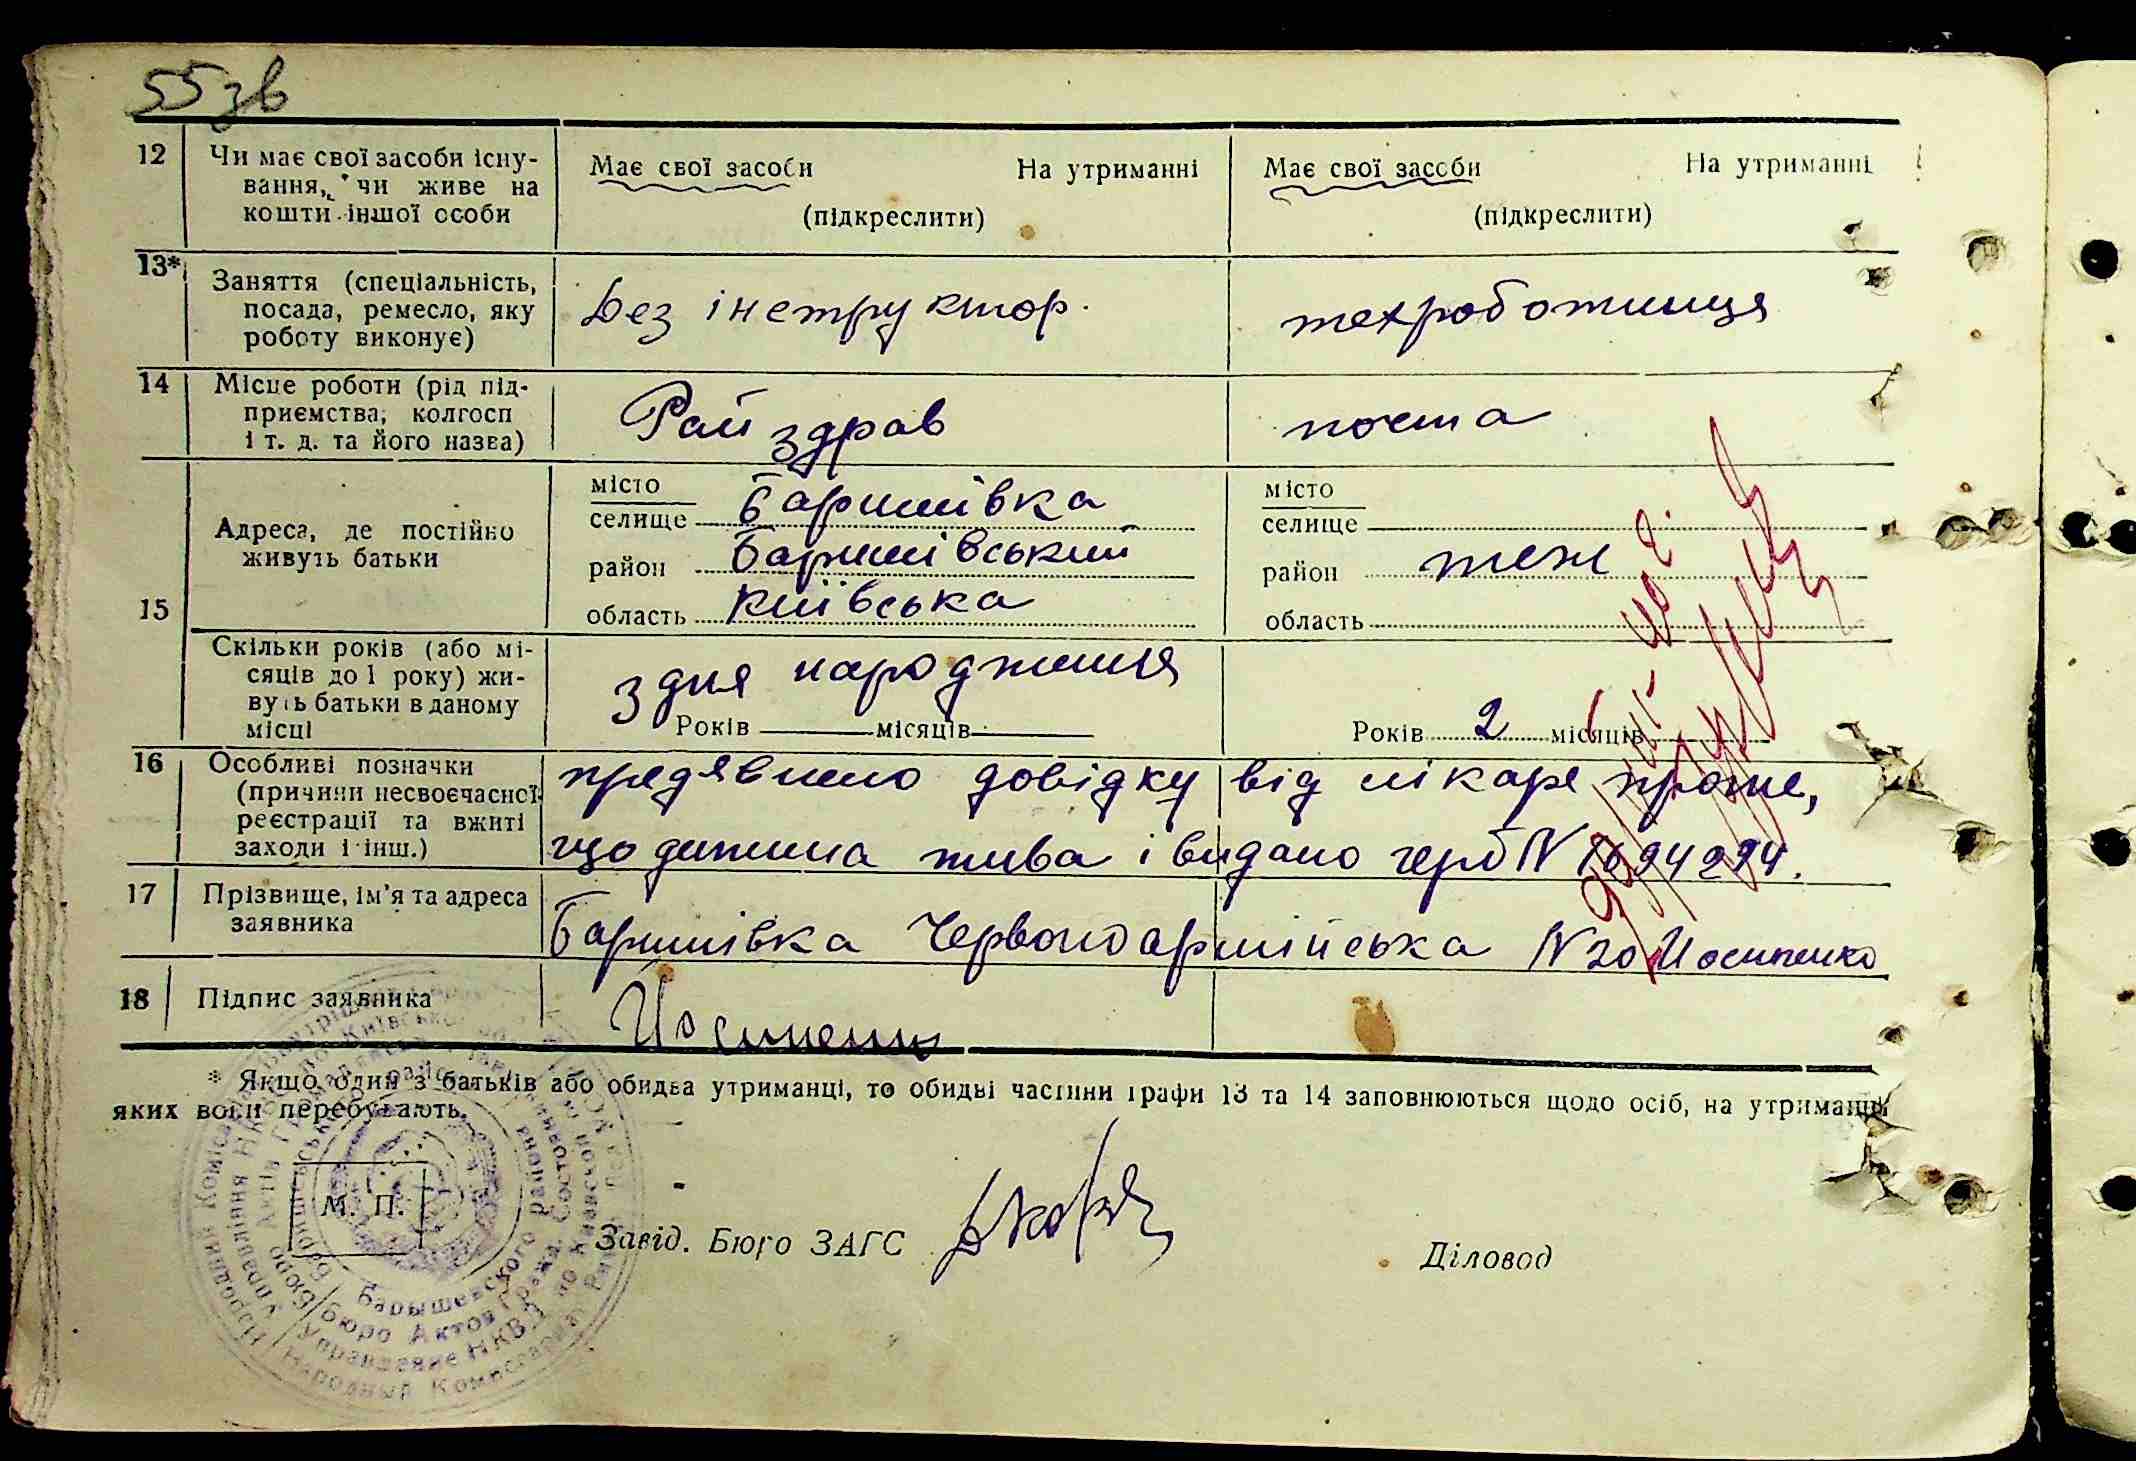 55зв
12 Чи має свої засоби існу-
вання, чи живе на
кошти іншої особи
Має свої засоби На утриманні
(підкреслити)
Має свої засоби На утриманні
(підкреслити)
13* Заняття (спеціальність,
посада, ремесло, яку
роботу виконує)
Дез інструктор.
техроботниця
14 Місце роботи (рід під-
приємства, колгосп
і т. д. та його назва)
Рай здрав
пошта
15 Адреса, де постійно
живуть батьки
місто
селище Баришівка
район Баришівський
область Київська
місто
селище
район теж
область
Скільки років (або мі-
сяців до 1 року) жи-
вуть батьки в даному
місці
з дня народження
Років місяців
Років 2 місяців
16 Особливі позначки
(причини несвоєчасної
реєстрації та вжиті
заходи і інш.)
предявлено довідку від лікаря проте,
що дитина жива і видано герб N
17 Прізвище, ім'я та адреса
заявника
Баришівка Червоноармійська N 20 Йосипенко
18 Підпис заявника
Йосипенко
* Якщо один з батьків або обидва утриманці, то обидві частини графи 13 та 14 заповнюються щодо осіб, на утриманні
яких вони перебувають.
М. П.
Завід. Бюро ЗАГС
Діловод
Барышевского района
Бюро Актов Гражд. Состояния
Управление НКВД по Киевской
Народный Комиссариат Вн